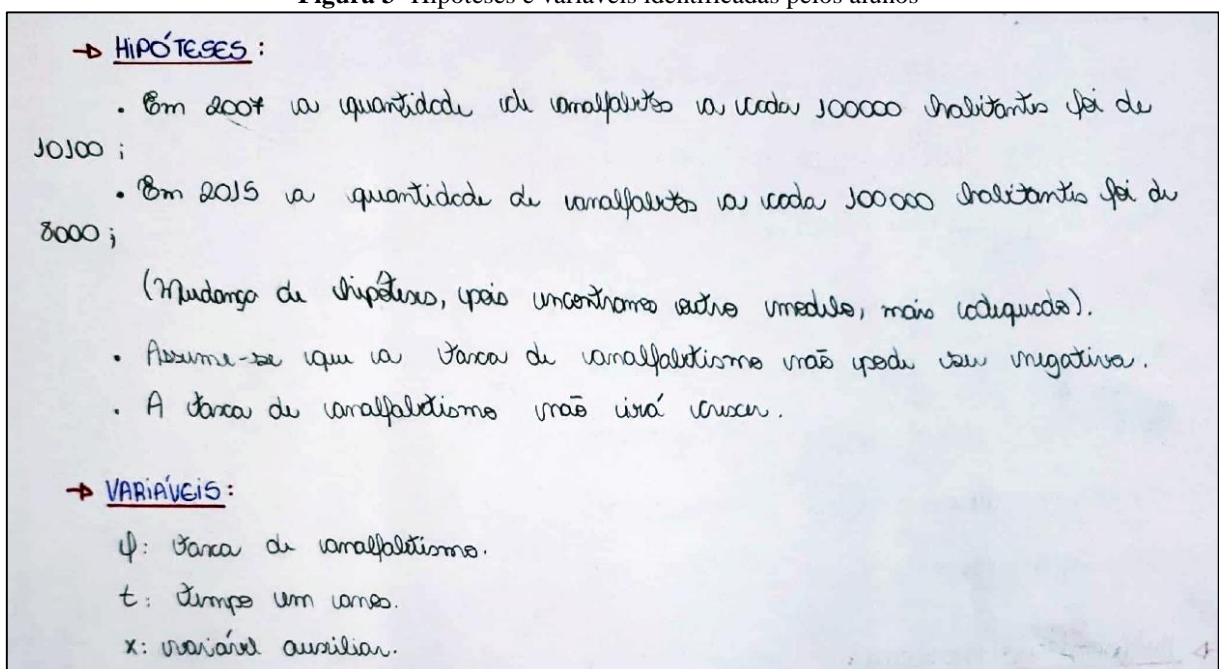 Figura 3- Hipóteses e variáveis identificadas pelos alunos
→ HIPÓTESES:
• Em 2007 a quantidade de analfabetos a cada 100000 habitantes foi de
10100;
• Em 2015 a quantidade de analfabetos a cada 100000 habitantes foi de
8000;
(Mudança de hipóteses, pois encontramos outro modelo, mais adequado).
• Assume-se que a taxa de analfabetismo não pode ser negativa.
• A taxa de analfabetismo não irá crescer.
→ VARIÁVEIS:
φ: taxa de analfabetismo.
t: tempo em anos.
x: variável auxiliar.